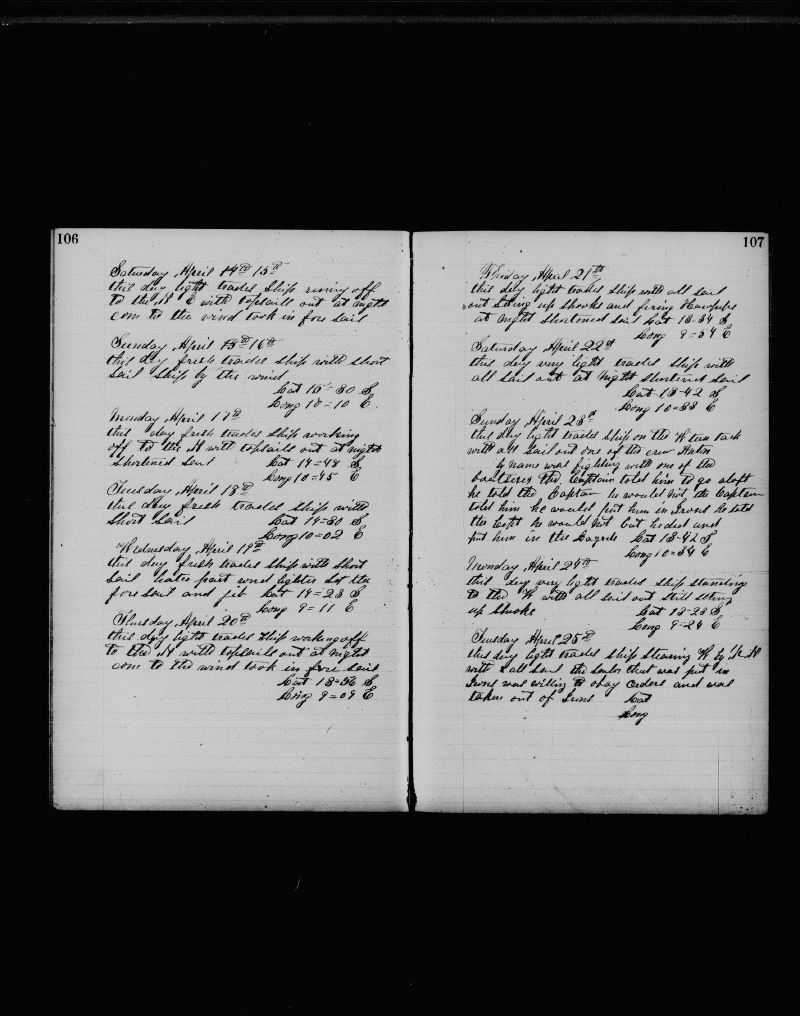 106
Saturday April 14th 15th
this day light trades Ship runing off
to the N E with topsails out at night
com to the wind took in fore sail
Sunday April 15th 16th
this day fresh trades Ship with short
sail Ship by the wind
Lat 15=30 S
Long 10=10 E
Monday April 17th
this day fresh trades Ship working
off to the N with topsails out at night
shortened sail Lat 14=44 S
Long 10=45 E
Tuesday April 18th
this day fresh trades Ship with
Short Sail Lat 14=30 S
Long 10=02 E
Wednesday April 19th
this day fresh trades Ship with short
sail later part wind lighter Set the
foresail and jib Lat 14=23 S
Long 9=11 E
Thursday April 20th
this day light trades Ship working off
to the N with topsails out at night
com to the wind took in fore sail
Lat 13=56 S
Long 9=09 E
107
Friday April 21th
this day light trades Ship with all sail
out Seting up Shooks and fixing
at night Shortened Sail Lat 13-34 S
Long 9=54 E
Saturday April 22d
this day very light trades Ship with
all sail out at night Shortened Sail
Lat 13-42 S
Long 10=33 E
Sunday April 23d
this day light trades Ship on the W tack
with all Sail out one of the crew
by name was fighting with one of the
the Captain told him to go aloft
he told the Captain he would not the Captain
told him he would put him in Irons he told
the Capt he would not but he did and
put him in the Lat 13-42 S
Long 10=34 E
Monday April 24th
this day very light trades Ship Standing
to the W with all sail out still Seting
up Shooks Lat 13-23 S
Long 9-24 E
Tuesday April 25th
this day light trades Ship Stearing W by N
with all Sail the Sailor that was put in
Irons was willing to obay orders and was
taken out of Irons Lat
Long